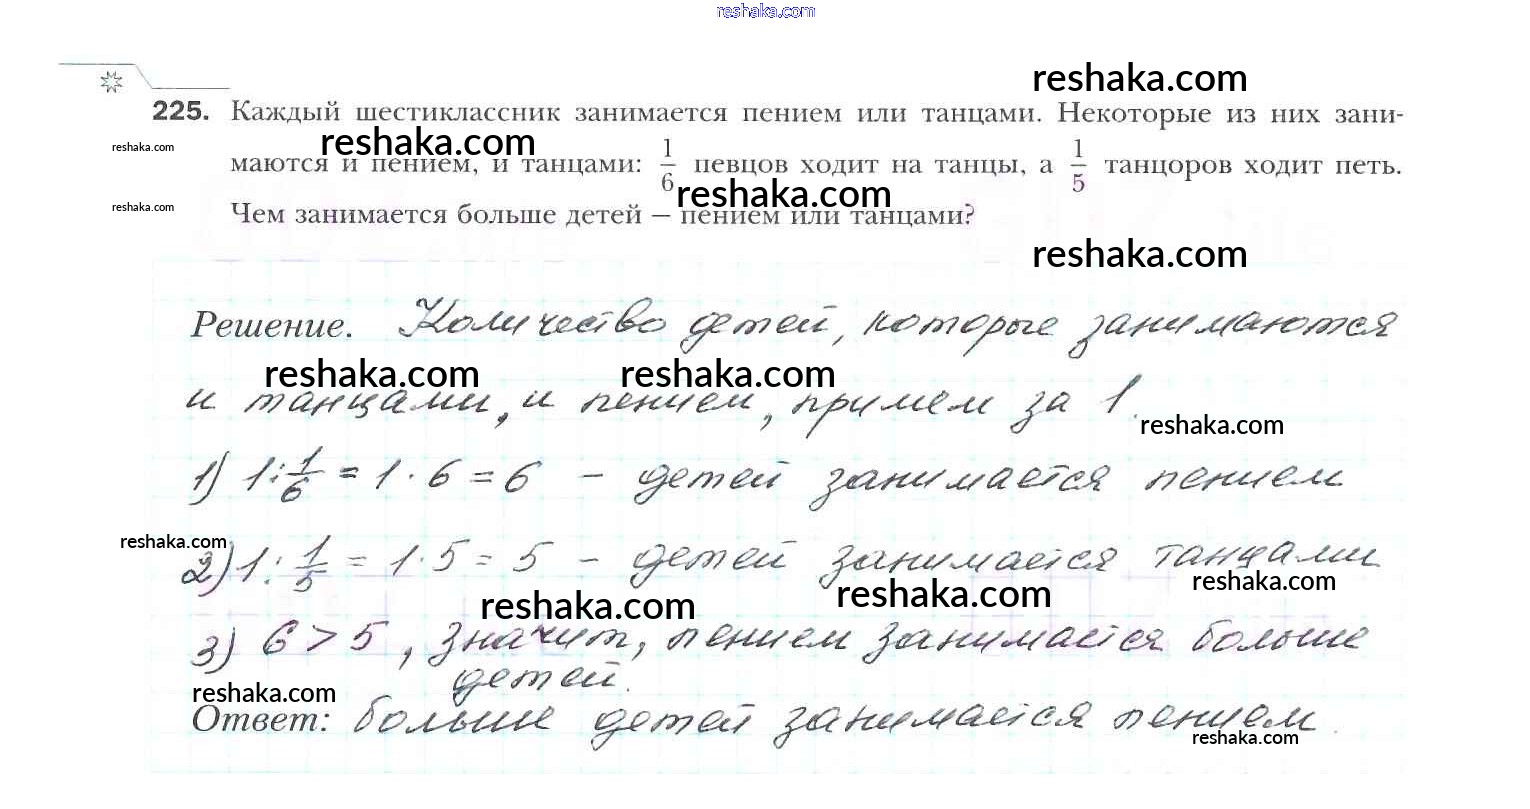 reshaka.com
reshaka.com
225. Каждый шестиклассник занимается пением или танцами. Некоторые из них зани-
reshaka.com
reshaka.com
маются и пением, и танцами: 1/6 певцов ходит на танцы, а 1/5 танцоров ходит петь.
reshaka.com
reshaka.com
Чем занимается больше детей – пением или танцами?
reshaka.com
Решение. Количество детей, которые занимаются
reshaka.com reshaka.com
и танцами, и пением, примем за 1.
reshaka.com
1) 1 : 1/6 = 1 · 6 = 6 – детей занимается пением
reshaka.com
2) 1 : 1/5 = 1 · 5 = 5 – детей занимается танцами
reshaka.com
reshaka.com reshaka.com
3) 6 > 5, значит, пением занимается больше
детей.
reshaka.com
Ответ: больше детей занимается пением.
reshaka.com